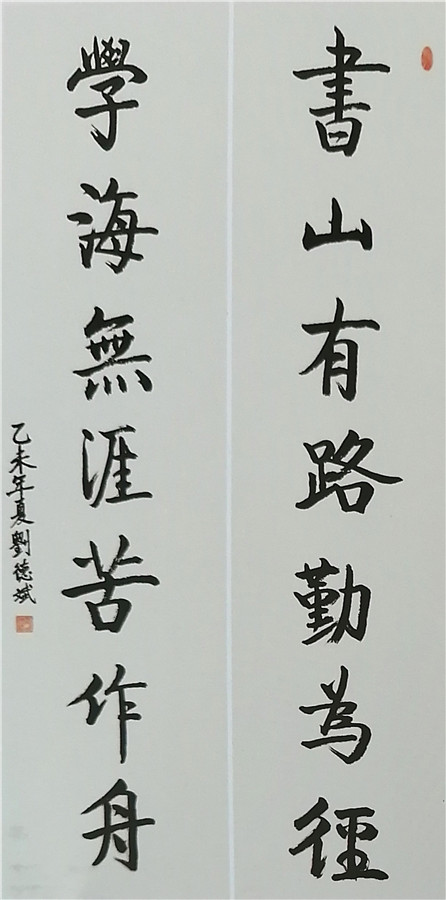 書山有路勤為徑
學海無涯苦作舟
乙未年夏劉德斌